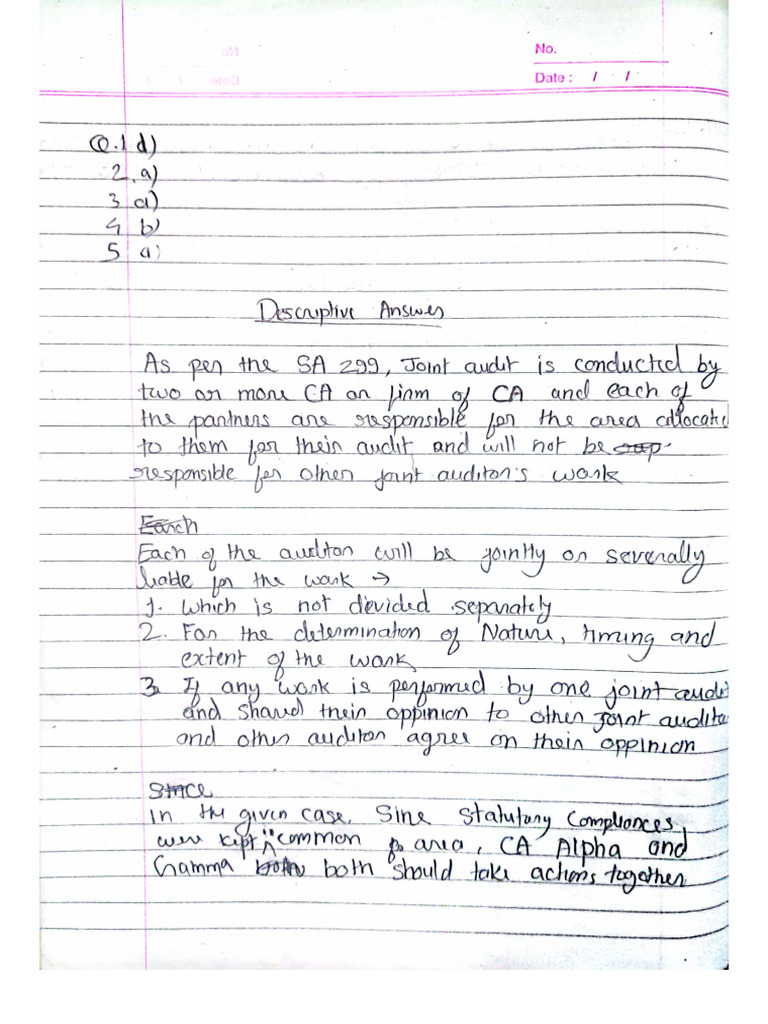 No.
Date : / /
Q.1 d)
2. a)
3 a)
4 b)
5 a)
Descriptive Answer
As per the SA 299, Joint audit is conducted by
two or more CA or firm of CA and each of
the partners are responsible for the area allocate
to them for their audit and will not be
responsible for other joint auditor's work
Each
Each of the auditor will be jointly or severally
liable for the work →
1. Which is not devided separately
2. For the determination of Nature, timing and
extent of the work
3. If any work is performed by one joint audit
and shared their oppinion to other joint audito
and other auditor agree on their oppinion
Since
In the given case, Sine Statutory Compliances
were kept "common area, CA Alpha and
Gamma both both should take actions together